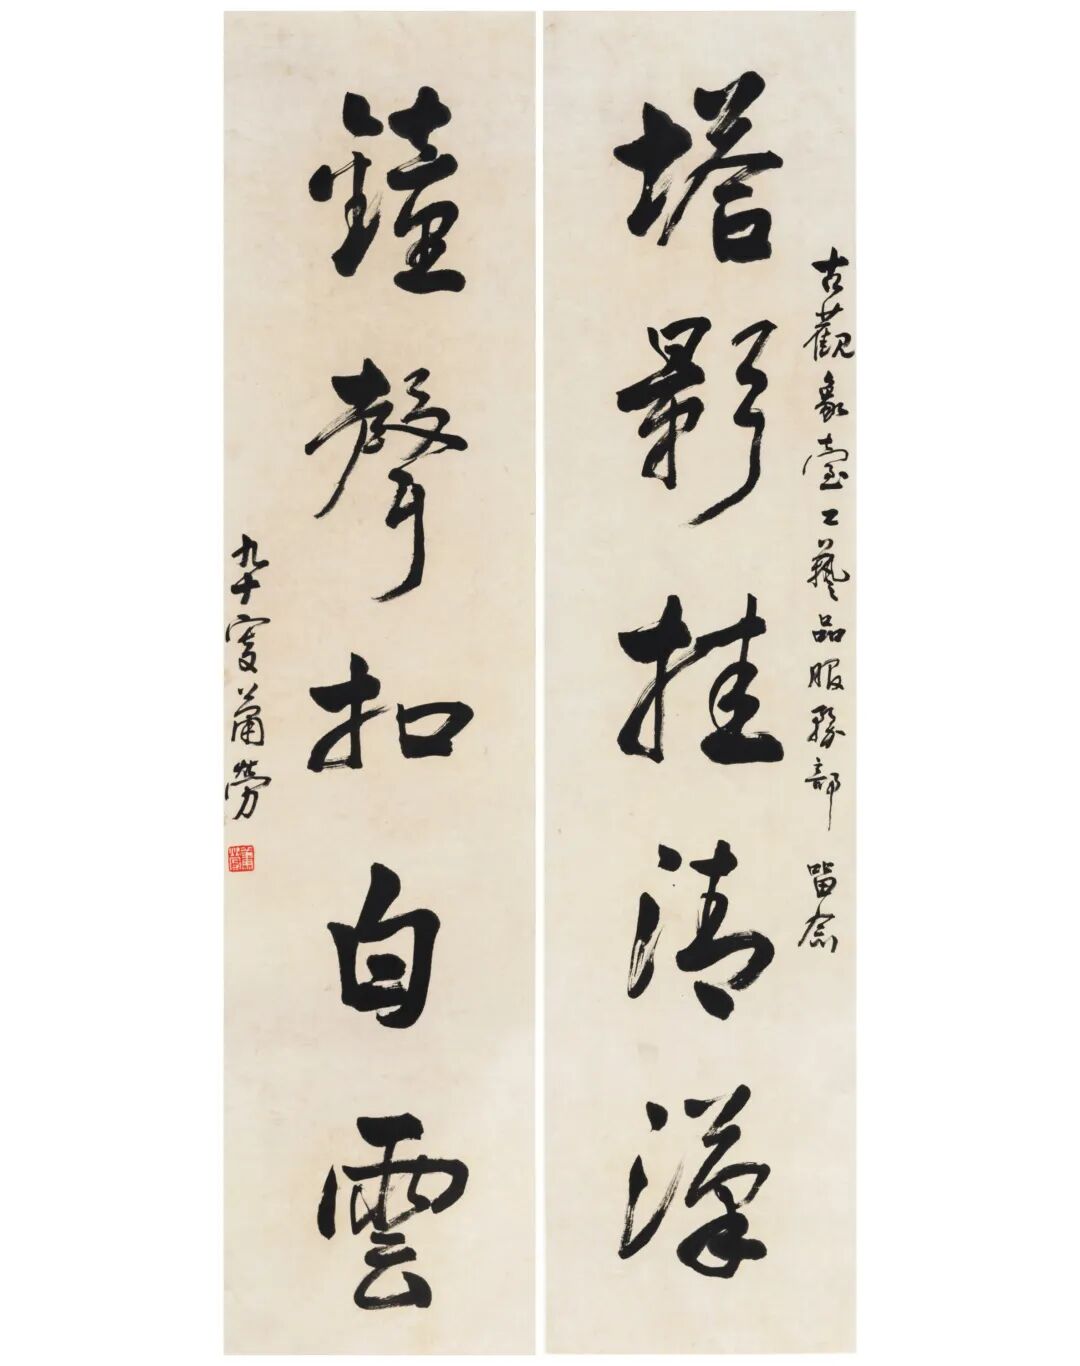 塔影挂清漢
古觀象臺工藝品服務部 留念
鐘聲扣白雲
九十叟蕭勞
蕭勞